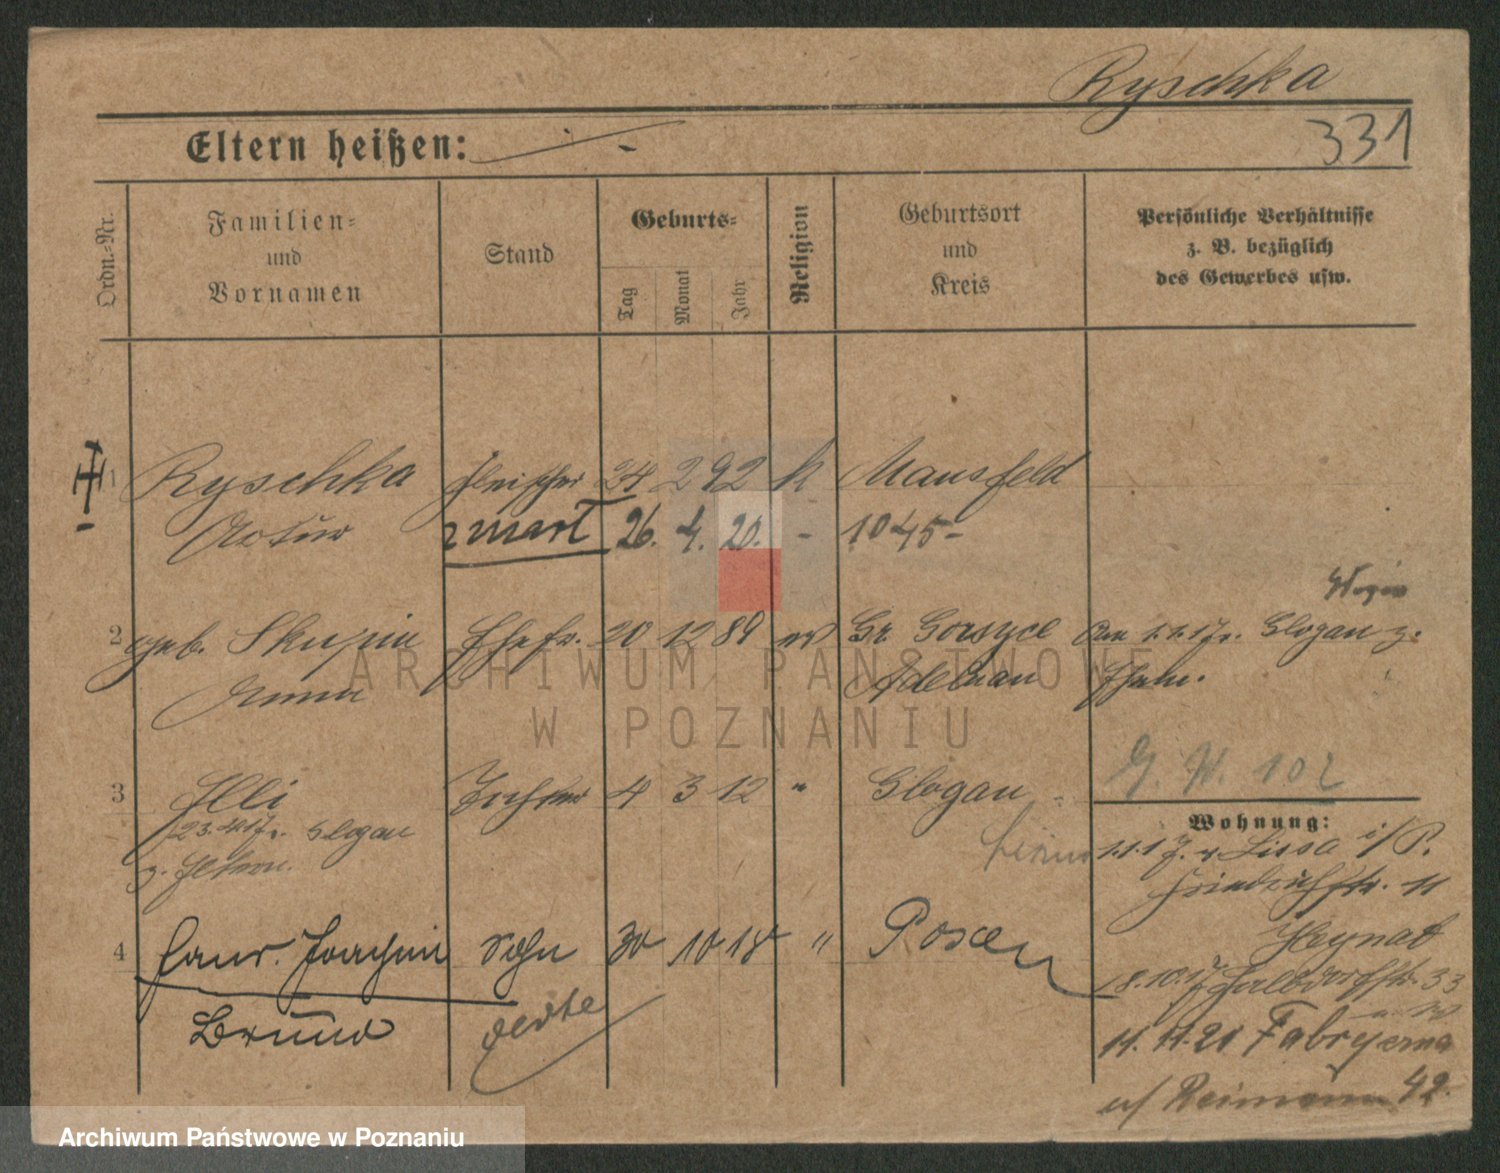 Ryschka
331
Eltern heißen:
Ordn.-Nr.
Familien- und Vornamen
Stand
Geburts-
Tag
Monat
Jahr
Religion
Geburtsort und Kreis
Persönliche Verhältnisse z. B. bezüglich des Gewerbes usw.
1 Ryschka Fleischer 24 2 92 k Mansfeld
Artur zmarł 26. 4. 20. - 1045-
2 geb. Skupin Ehefr. 20 12 89 Gr. Adelnau
Anna
Am 1.1.17 v. Glogau z. Ehem.
G. W. 102
3 Elli Tochter 4 3 12 " Glogau
23. 4. 17 v. Glogau
z. Eltern.
Wohnung:
1.1.17. v. Lissa i/P.
Friedrichstr. 11
4 Hans. Joachim Sohn 30 10 18 " Posen
Bruno
18.10.17 33
11.11.21 Fabryczna
u/ Reimann 42.
ARCHIWUM PAŃSTWOWE
W POZNANIU
Archiwum Państwowe w Poznaniu